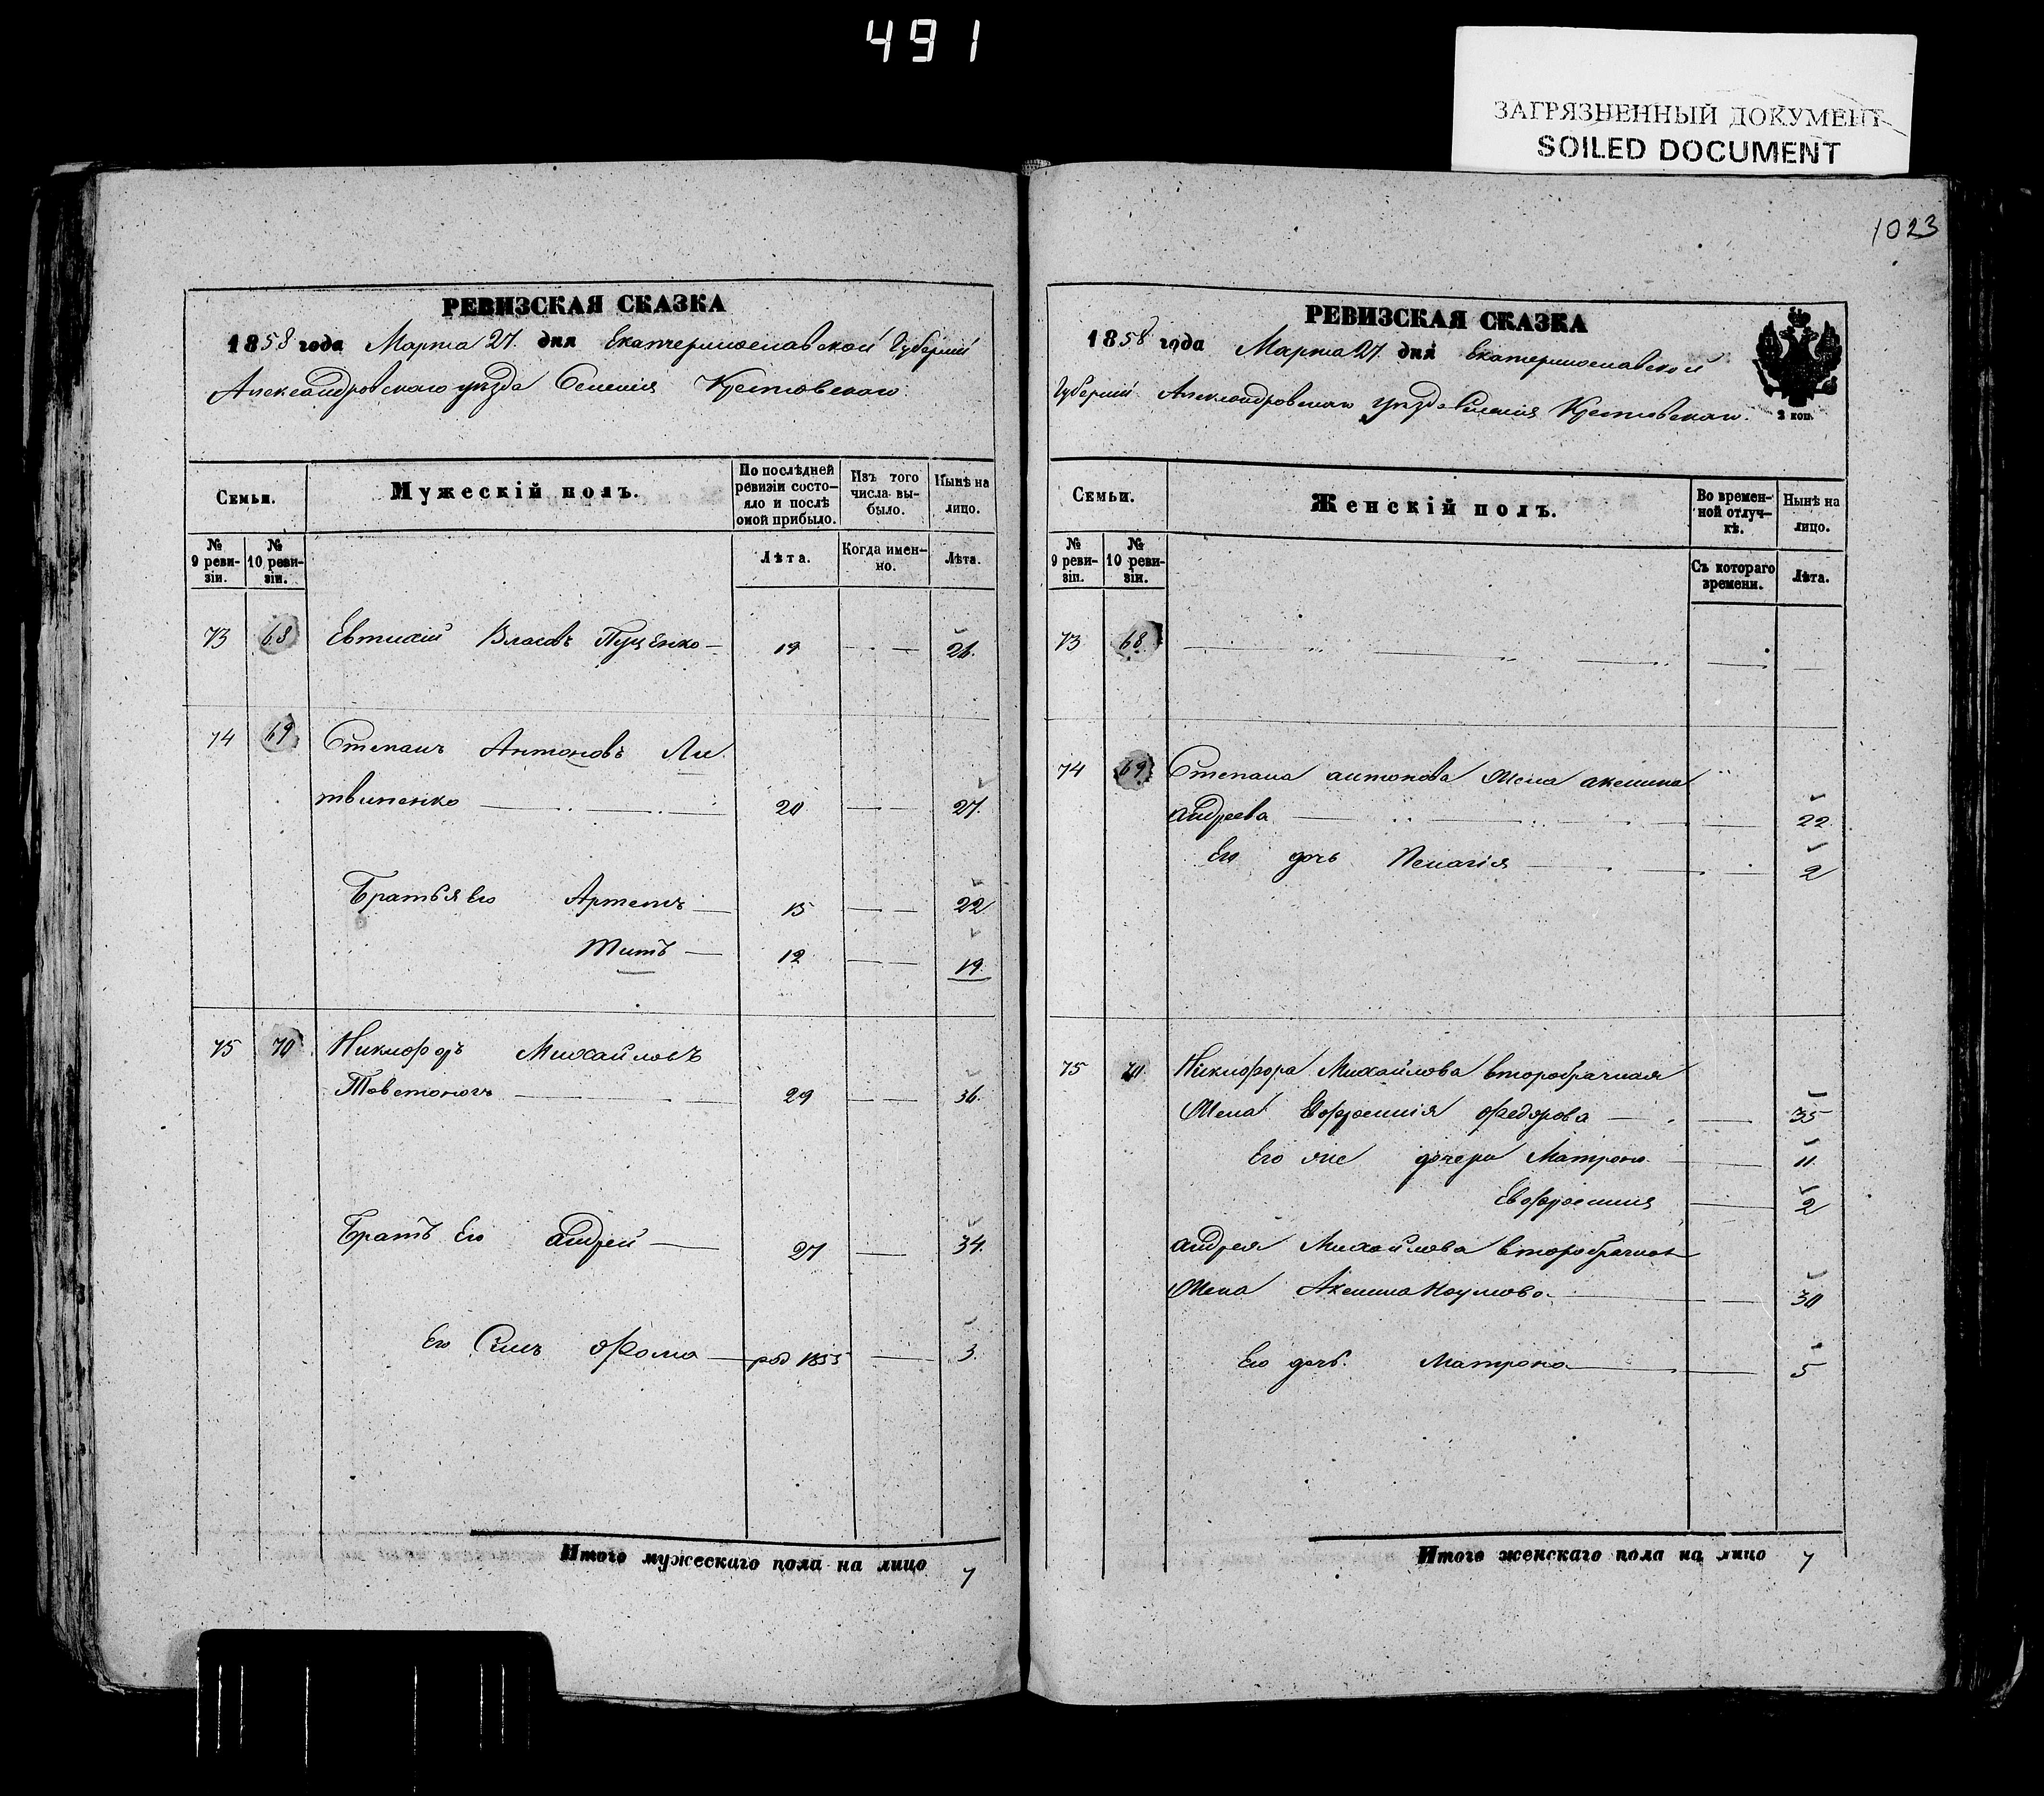 491
ЗАГРЯЗНЕННЫЙ ДОКУМЕНТ
SOILED DOCUMENT
РЕВИЗСКАЯ СКАЗКА
1858 года Марта 27. дня Екатеринославской Губерніи
Александровскаго уѣзда Селенія Крестовскаго.
Семьи.
Мужескій полъ.
По послѣдней ревизіи состо-
яло и послѣ
оной прибыло.
Изъ того
числа вы-
было.
Нынѣ на
лицо.
№
9 реви-
зіи.
№
10 реви-
зіи.
Лѣта.
Когда имен-
но.
Лѣта.
73 68 Евтихій Власовъ Пуценко 19 26.
74 69 Степанъ Антоновъ Ли
твиненко 20 27.
Братья его Артемъ 15 22
Титъ 12 19.
75 70 Никифоръ Михайловъ
Товстоногъ 29 36.
Братъ Его Андрей 27 34.
Его Сынъ Фома род 1855 3.
Итого мужескаго пола на лицо 7
1023
РЕВИЗСКАЯ СКАЗКА
1858 года Марта 27. дня Екатеринославской
Губерніи Александровскаго уѣзда Селенія Крестовскаго.
2 коп.
Семьи.
Женскій полъ.
Во времен-
ной отлуч-
кѣ.
Нынѣ на
лицо.
№
9 реви-
зіи.
№
10 реви-
зіи.
Съ котораго
времени.
Лѣта.
73 68
74 69 Степана Антонова Жена Аксинья
Андреева 22
Его дочь Пелагія 2
75 70 Никифора Михайлова второбрачная
Жена Ефросинія Федорова 35
Его же дочери Матрона 11
Евфросинія 2
Андрея Михайлова второбрачная
Жена Аксинья Наумова 30
Его дочь Матрона 5
Итого женскаго пола на лицо 7